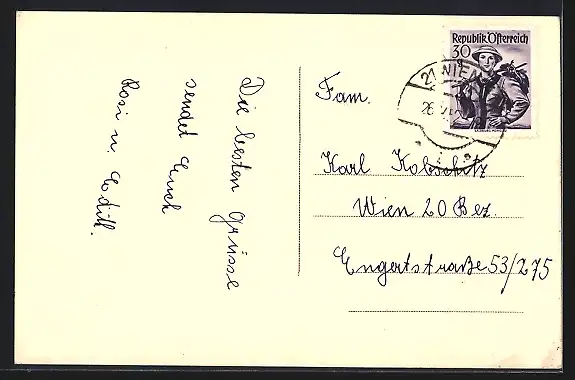 Die besten Grüsse
sendet Euch
Rosi u. Edith.
Republik Österreich
30
21 WIEN
26.V
SALZBURG PONGAU
Fam.
Karl Kobschitz
Wien 20 Bez.
Engertstraße 53/275